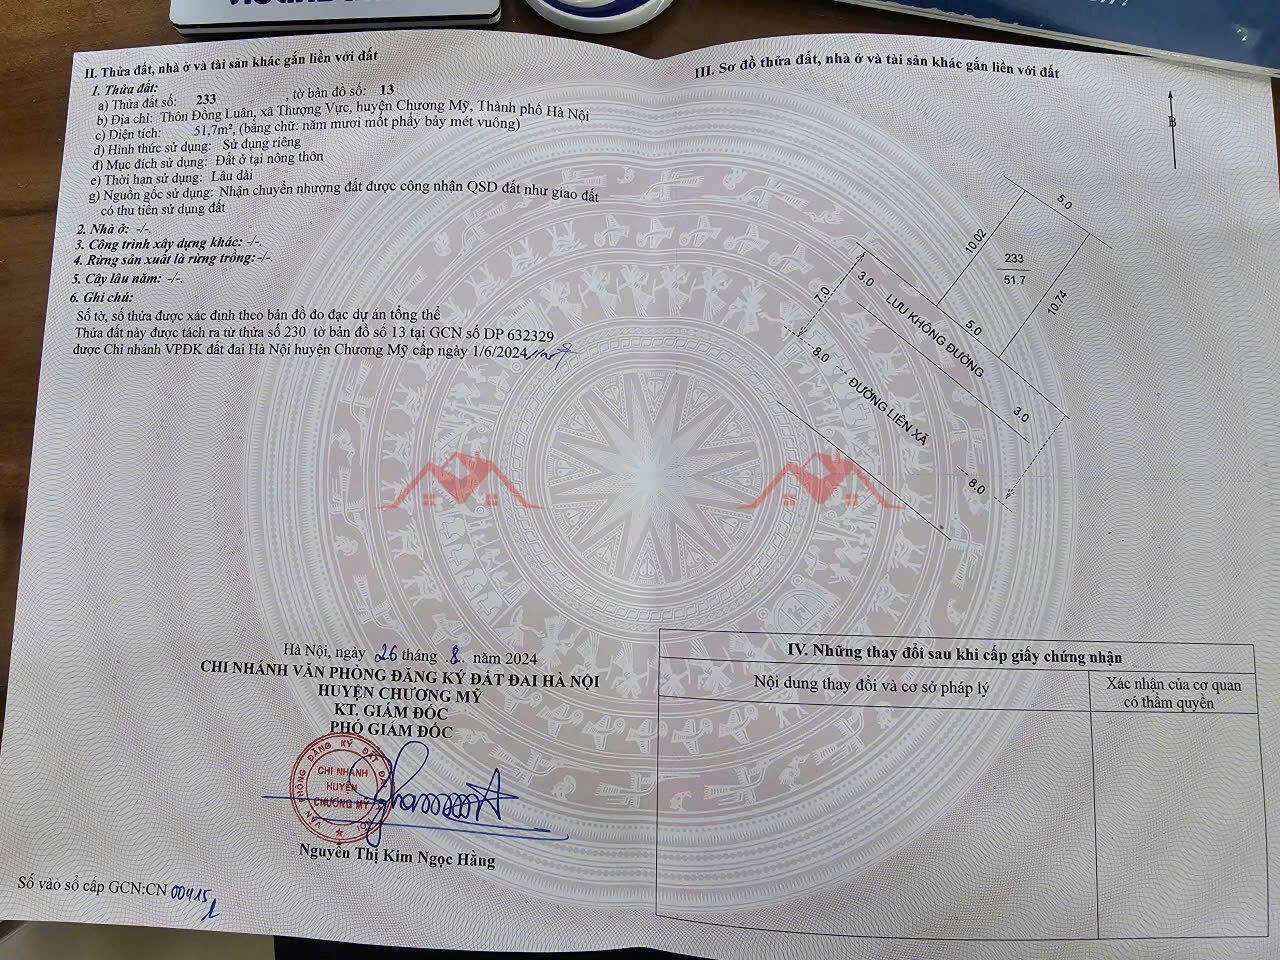 II. Thửa đất, nhà ở và tài sản khác gắn liền với đất
1. Thửa đất:
a) Thửa đất số: 233 , tờ bản đồ số: 13
b) Địa chỉ: Thôn Đồng Luân, xã Thượng Vực, huyện Chương Mỹ, Thành phố Hà Nội
c) Diện tích: 51,7m², (bằng chữ: năm mươi mốt phẩy bảy mét vuông)
d) Hình thức sử dụng: Sử dụng riêng
đ) Mục đích sử dụng: Đất ở tại nông thôn
e) Thời hạn sử dụng: Lâu dài
g) Nguồn gốc sử dụng: Nhận chuyển nhượng đất được công nhận QSD đất như giao đất
có thu tiền sử dụng đất
2. Nhà ở: -/-.
3. Công trình xây dựng khác: -/-.
4. Rừng sản xuất là rừng trồng: -/-.
5. Cây lâu năm: -/-.
6. Ghi chú:
Số tờ, số thửa được xác định theo bản đồ đo đạc dự án tổng thể
Thửa đất này được tách ra từ thửa số 230 tờ bản đồ số 13 tại GCN số DP 632329
được Chi nhánh VPĐK đất đai Hà Nội huyện Chương Mỹ cấp ngày 1/6/2024
Hà Nội, ngày 26 tháng .8. năm 2024
CHI NHÁNH VĂN PHÒNG ĐĂNG KÝ ĐẤT ĐAI HÀ NỘI
HUYỆN CHƯƠNG MỸ
KT. GIÁM ĐỐC
PHÓ GIÁM ĐỐC
VĂN PHÒNG ĐĂNG KÝ ĐẤT ĐAI HÀ NỘI
CHI NHÁNH
HUYỆN
CHƯƠNG MỸ
Nguyễn Thị Kim Ngọc Hằng
Số vào sổ cấp GCN:CN 00415
III. Sơ đồ thửa đất, nhà ở và tài sản khác gắn liền với đất
B
5.0
10.02
233
51.7
10.74
5.0
3.0
7.0
LƯU KHÔNG ĐƯỜNG
8.0
ĐƯỜNG LIÊN XÃ
3.0
8.0
IV. Những thay đổi sau khi cấp giấy chứng nhận
Nội dung thay đổi và cơ sở pháp lý
Xác nhận của cơ quan
có thẩm quyền